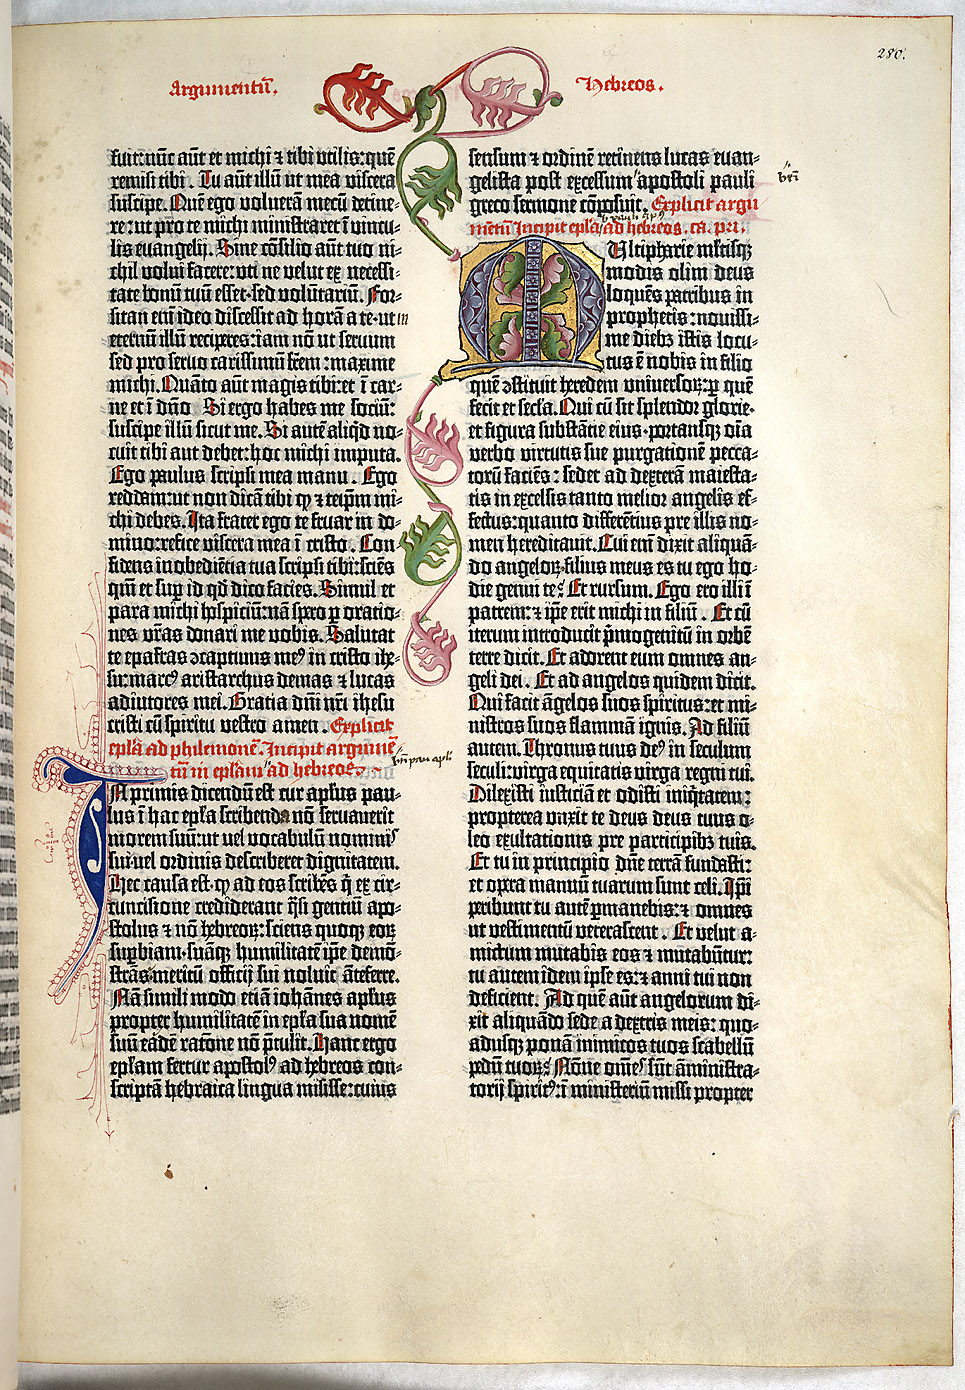 280.
Argumentū.
Hebreos.
fuit: nūc aūt et michi ⁊ tibi utilis: quē
remisi tibi. Tu aūt illū ut mea viscera
suscipe. Quē ego volueram mecū detine-
re: ut pro te michi ministraret ī vincu-
lis euangelij. Sine cōsilio aūt tuo ni-
chil volui facere: vti ne velut ex necessi-
tate bonū tuū esset· sed volūtariū. For-
sitan enī ideo discessit ad horā a te· ut in
eternū illū reciperes: iam nō ut seruum
sed pro seruo carissimū frem̄: maxime
michi. Quāto aūt magis tibi: et ī car-
ne et ī dño. Si ergo habes me sociū:
suscipe illū sicut me. Si autē aliqd no-
cuit tibi aut debet: hoc michi imputa.
Ego paulus scripsi mea manu. Ego
reddam: ut non dicā tibi qꝫ ⁊ teipm̄ mi-
chi debes. Ita frater ego te fruar in do-
mino: refice viscera mea ī cristo. Con-
fidens in obediētia tua scripsi tibi: sciēs
qm̄ et sup̄ id qd̄ dico facies. Simul et
para michi hospiciū: nā spero ꝑ oratio-
nes vr̄as donari me vobis. Salutat
te epafras ɔcaptiuus meꝰ in cristo ihe-
su: marcꝰ aristarchus demas ⁊ lucas
adiutores mei. Gratia dn̄i nr̄i ihesu
cristi cū spiritu vestro amen. Explicit
epl̄a ad philemonē. Incipit argumē-
tū in epl̄am ad hebreos.
In primis dicendū est cur apl̄us pau-
lus ī hac epl̄a scribenda nō seruauerit
morem suū: ut vel vocabulū nominis
sui vel ordinis describeret dignitatem.
Hec causa est· qꝫ ad eos scribēs q̄ ex cir-
cuncisione crediderant q̄si gentiū apo-
stolus ⁊ nō hebreoꝝ: sciens quoqꝫ eoꝝ
suꝑbiam· suāqꝫ humilitatē ip̄e demō-
strās· meritū officij sui noluit āteferre.
Nā simili modo etiā iohānes apl̄us
propter humilitatē in epl̄a sua nomē
suū eadē ratōne nō p̄tulit. Hanc ergo
epl̄am fertur apostolꝰ ad hebreos con-
scriptā hebraica lingua misisse: cuius
sensum ⁊ ordinē retinens lucas euan-
gelista post excessum apostoli pauli
greco sermone cōposuit. Explicit argu
mētū Incipit epl̄a ad hebreos. ca. pri.
Multipharie mltisqꝫ
modis olim deus
loquēs patribus in
prophetis: nouissi-
me diebꝫ istis locu-
tus ē nobis in filio
quē ɔstituit heredem vniuersoꝝ: ꝑ quē
fecit et secl̄a. Qui cū sit splendor glorie·
et figura substātie eius· portansqꝫ oīa
verbo virtutis sue purgationē pecca-
torū faciēs: sedet ad dexterā maiesta-
tis in excelsis tanto melior angelis ef-
fectus: quanto differētius pre illis no-
men hereditauit. Cui enī dixit aliquā-
do angeloꝝ· filius meus es tu ego ho-
die genui te? Et rursum. Ego ero illi ī
patrem: ⁊ ip̄e erit michi in filiū. Et cū
iterum introducit p̄mogenitū in orbē
terre dicit. Et adorent eum omnes an-
geli dei. Et ad angelos quidem dicit.
Qui facit āgelos suos spiritus: et mi-
nistros suos flammā ignis. Ad filiū
autem. Thronus tuus deꝰ in seculum
seculi: virga equitatis virga regni tui.
Dilexisti iusticiā et odisti iniq̄tatem:
propterea vnxit te deus deus tuus o-
leo exultationis pre participibꝫ tuis.
Et tu in principio dn̄e terrā fundasti:
et opera manuū tuarum sunt celi. Ip̄i
peribunt tu autē ꝑmanebis: ⁊ omnes
ut vestimentū veterascent. Et velut a-
mictum mutabis eos ⁊ mutabūtur:
tu autem idem ipse es: ⁊ anni tui non
deficient. Ad quē aūt angelorum di-
xit aliquādo sede a dextris meis: quo-
adusqꝫ ponā inimicos tuos scabellū
pedū tuoꝝ? Nōne om̄es sūt āministra-
torij spiritꝰ: ī ministeriū missi propter